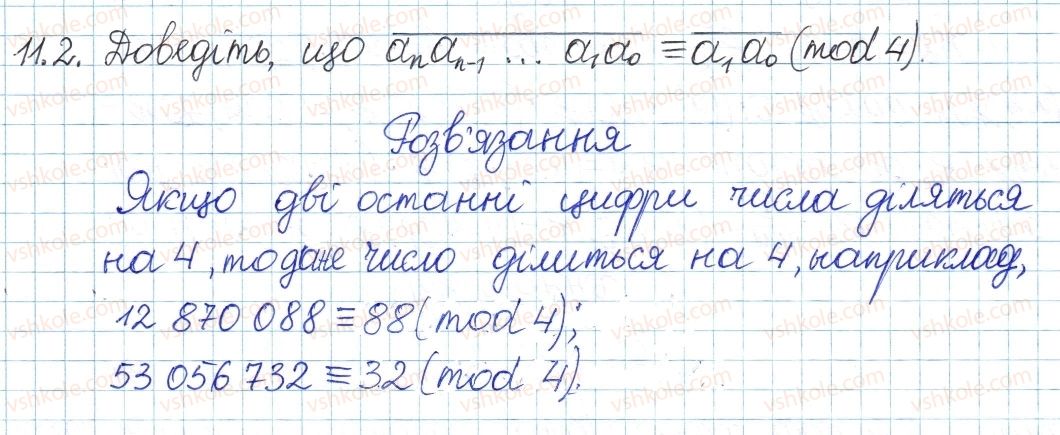 11.2. Доведіть, що a̅ₙa̅ₙ₋₁ ... a̅₁a̅₀ ≡ a̅₁a̅₀ (mod 4).
Розв'язання
Якщо дві останні цифри числа діляться
на 4, то дане число ділиться на 4, наприклад,
12 870 088 ≡ 88 (mod 4);
53 056 732 ≡ 32 (mod 4).